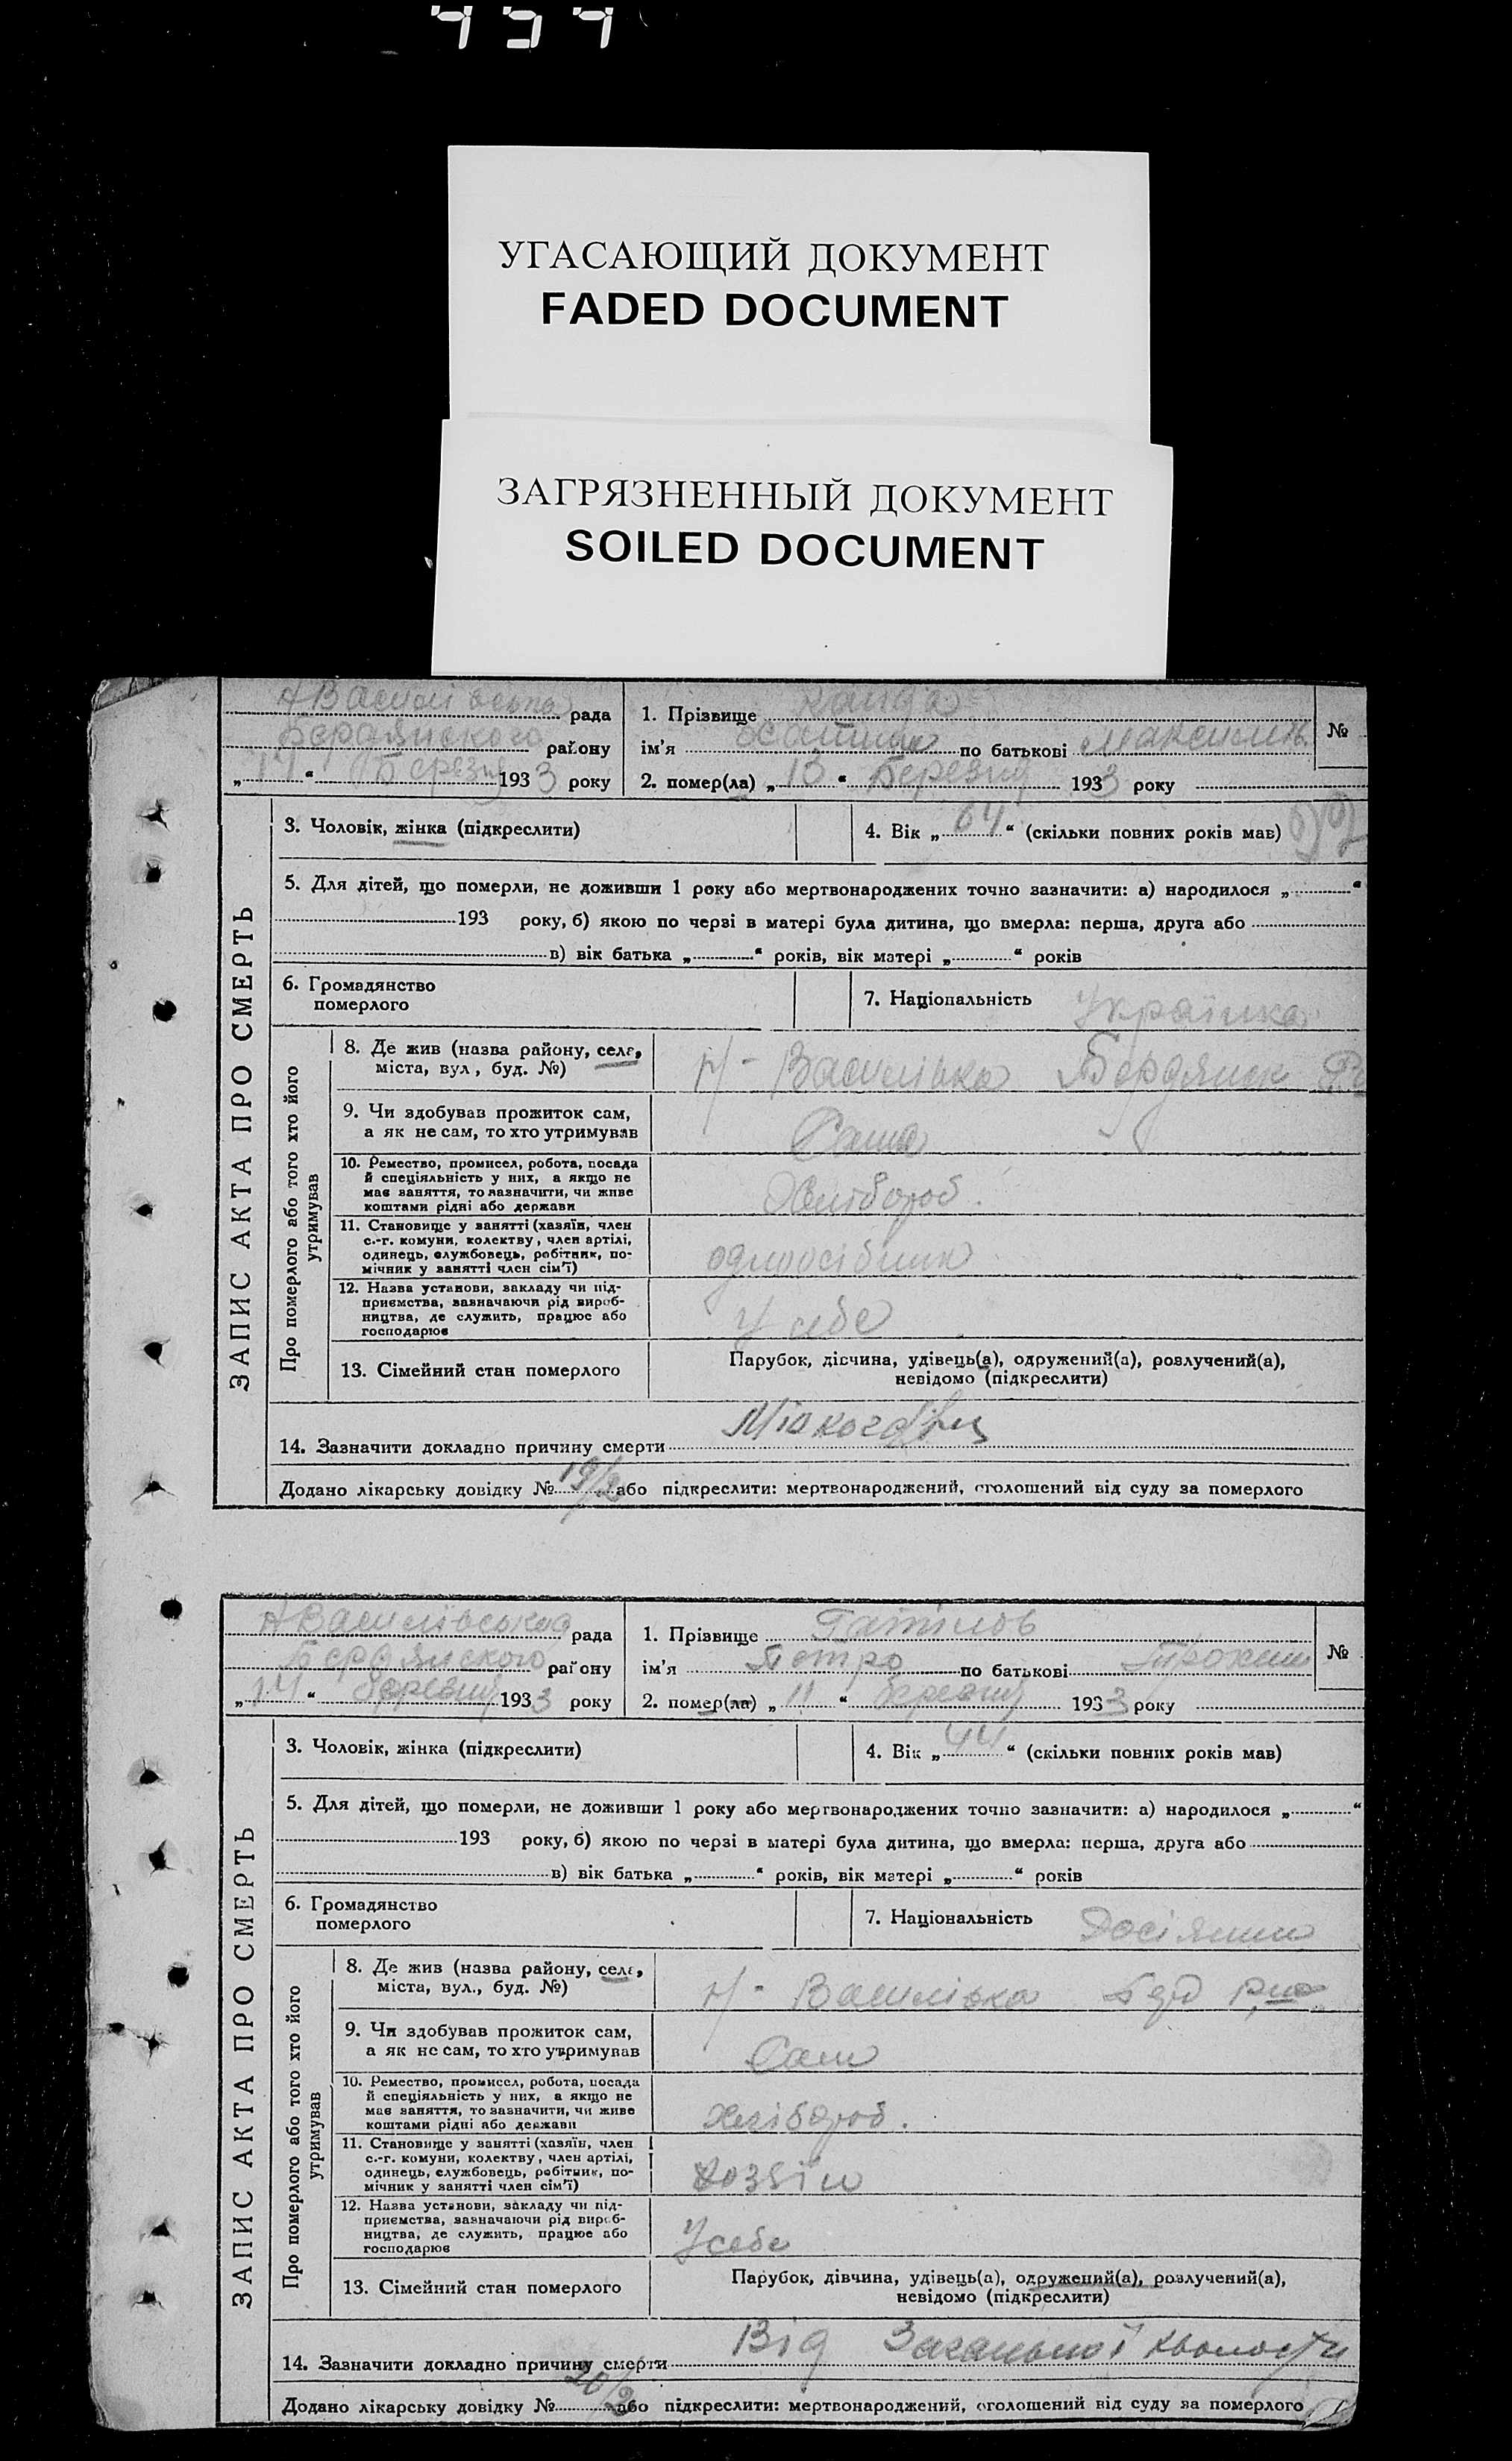 УГАСАЮЩИЙ ДОКУМЕНТ
FADED DOCUMENT
ЗАГРЯЗНЕННЫЙ ДОКУМЕНТ
SOILED DOCUMENT
ЗАПИС АКТА ПРО СМЕРТЬ
рада
Бердянского району
„14“ Березня 1933 року
1. Прізвище
№
ім'я по батькові
2. помер(ла) „13“ Березня 1933 року
3. Чоловік, жінка (підкреслити)
4. Вік „64“ (скільки повних років мав)
5. Для дітей, що померли, не доживши 1 року або мертвонароджених точно зазначити: а) народилося „ “
193 року, б) якою по черзі в матері була дитина, що вмерла: перша, друга або
в) вік батька „ “ років, вік матері „ “ років
6. Громадянство
померлого
7. Національність Українка
Про померлого або того хто його
утримував
8. Де жив (назва району, села,
міста, вул, буд. №)
Н-Василівка Бердянск
9. Чи здобував прожиток сам,
а як не сам, то хто утримував
Сама
10. Ремество, промисел, робота, посада
й спеціяльність у них, а якщо не
має заняття, то зазначити, чи живе
коштами рідні або держави
Хлібороб.
11. Становище у занятті (хазяїн, член
с.-г. комуни, колектву, член артілі,
одинець, службовець, робітник, по-
мічник у занятті член сім'ї)
одноосібник
12. Назва установи, закладу чи під-
приємства, зазначаючи рід вироб-
ництва, де служить, працює або
господарює
У себе
13. Сімейний стан померлого
Парубок, дівчина, удівець(а), одружений(а), розлучений(а),
невідомо (підкреслити)
14. Зазначити докладно причину смерти
Додано лікарську довідку № 19/2 або підкреслити: мертвонароджений, оголошений від суду за померлого
ЗАПИС АКТА ПРО СМЕРТЬ
НВасилівська рада
Бердянского району
„14“ березня 1933 року
1. Прізвище Гатілов
№
ім'я Петро по батькові
2. помер(ла) „11“ березня 1933 року
3. Чоловік, жінка (підкреслити)
4. Вік „44“ (скільки повних років мав)
5. Для дітей, що померли, не доживши 1 року або мертвонароджених точно зазначити: а) народилося „ “
193 року, б) якою по черзі в матері була дитина, що вмерла: перша, друга або
в) вік батька „ “ років, вік матері „ “ років
6. Громадянство
померлого
7. Національність Росіянин
Про померлого або того хто його
утримував
8. Де жив (назва району, села,
міста, вул., буд. №)
Н-Василівка
9. Чи здобував прожиток сам,
а як не сам, то хто утримував
Сам
10. Ремество, промисел, робота, посада
й спеціяльність у них, а якщо не
має заняття, то зазначити, чи живе
коштами рідні або держави
хлібороб.
11. Становище у занятті (хазяїн, член
с.-г. комуни, колектву, член артілі,
одинець, службовець, робітник, по-
мічник у занятті член сім'ї)
Хозяїн
12. Назва установи, закладу чи під-
приємства, зазначаючи рід вироб-
ництва, де служить, працює або
господарює
У себе
13. Сімейний стан померлого
Парубок, дівчина, удівець(а), одружений(а), розлучений(а),
невідомо (підкреслити)
14. Зазначити докладно причину смерти Від Загальної кволости
Додано лікарську довідку № 20/2 або підкреслити: мертвонароджений, оголошений від суду за померлого